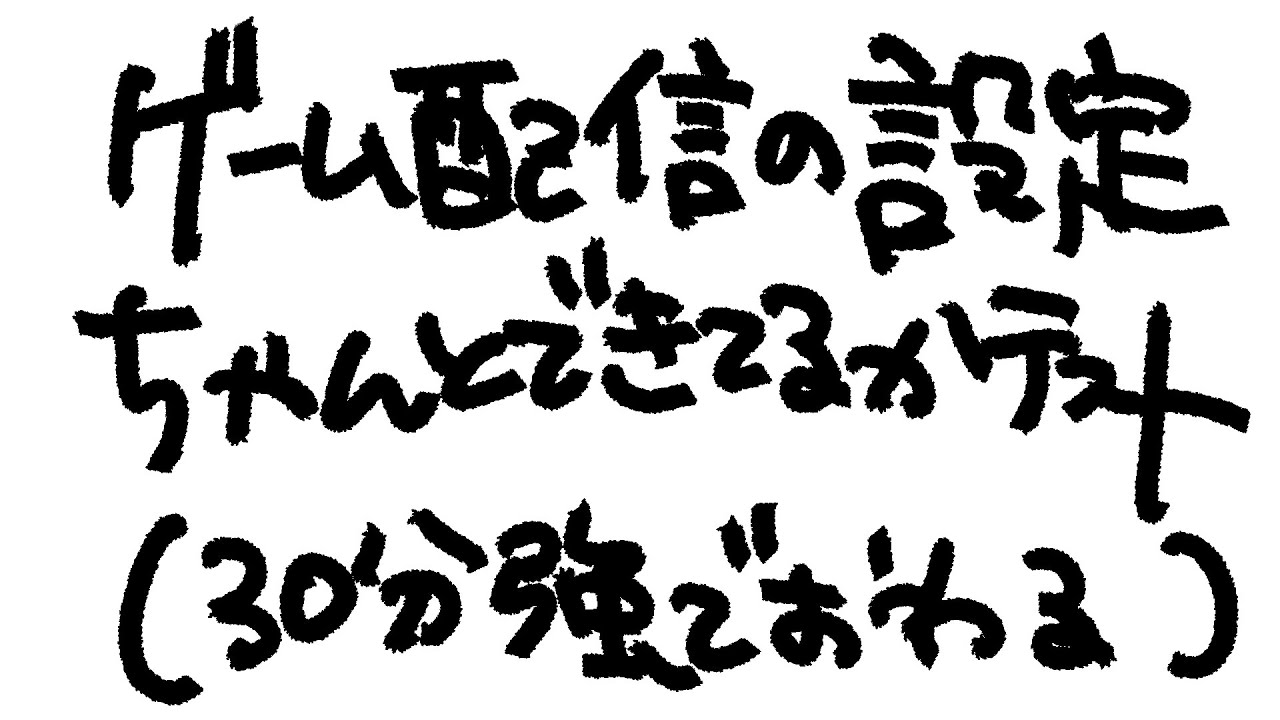 ゲーム配信の設定
ちゃんとできてるかテスト
(30分強でおわる)